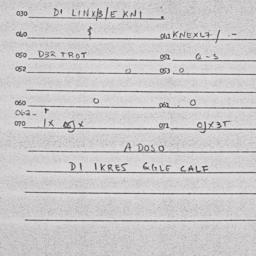 030 DI LINX/3/E KNI .
040 $ 041 KNEXL7/ .-
050 D32 TROT 051 G-S
052 0 053 0
060 0 061 0
062 T
070 1X 071 OJX3T
A DOSO
DI IKRES GGLE CALF